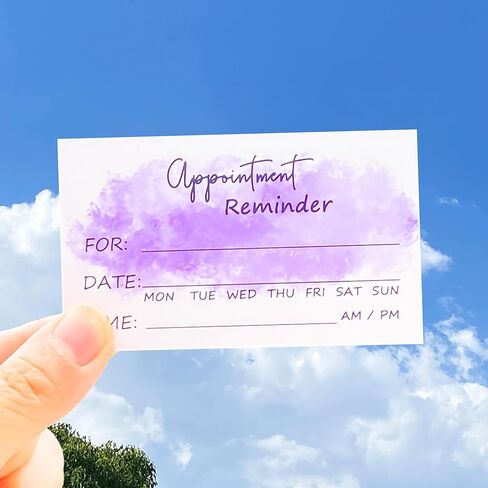 Appointment
Reminder
FOR:
DATE:
MON TUE WED THU FRI SAT SUN
ME: AM / PM